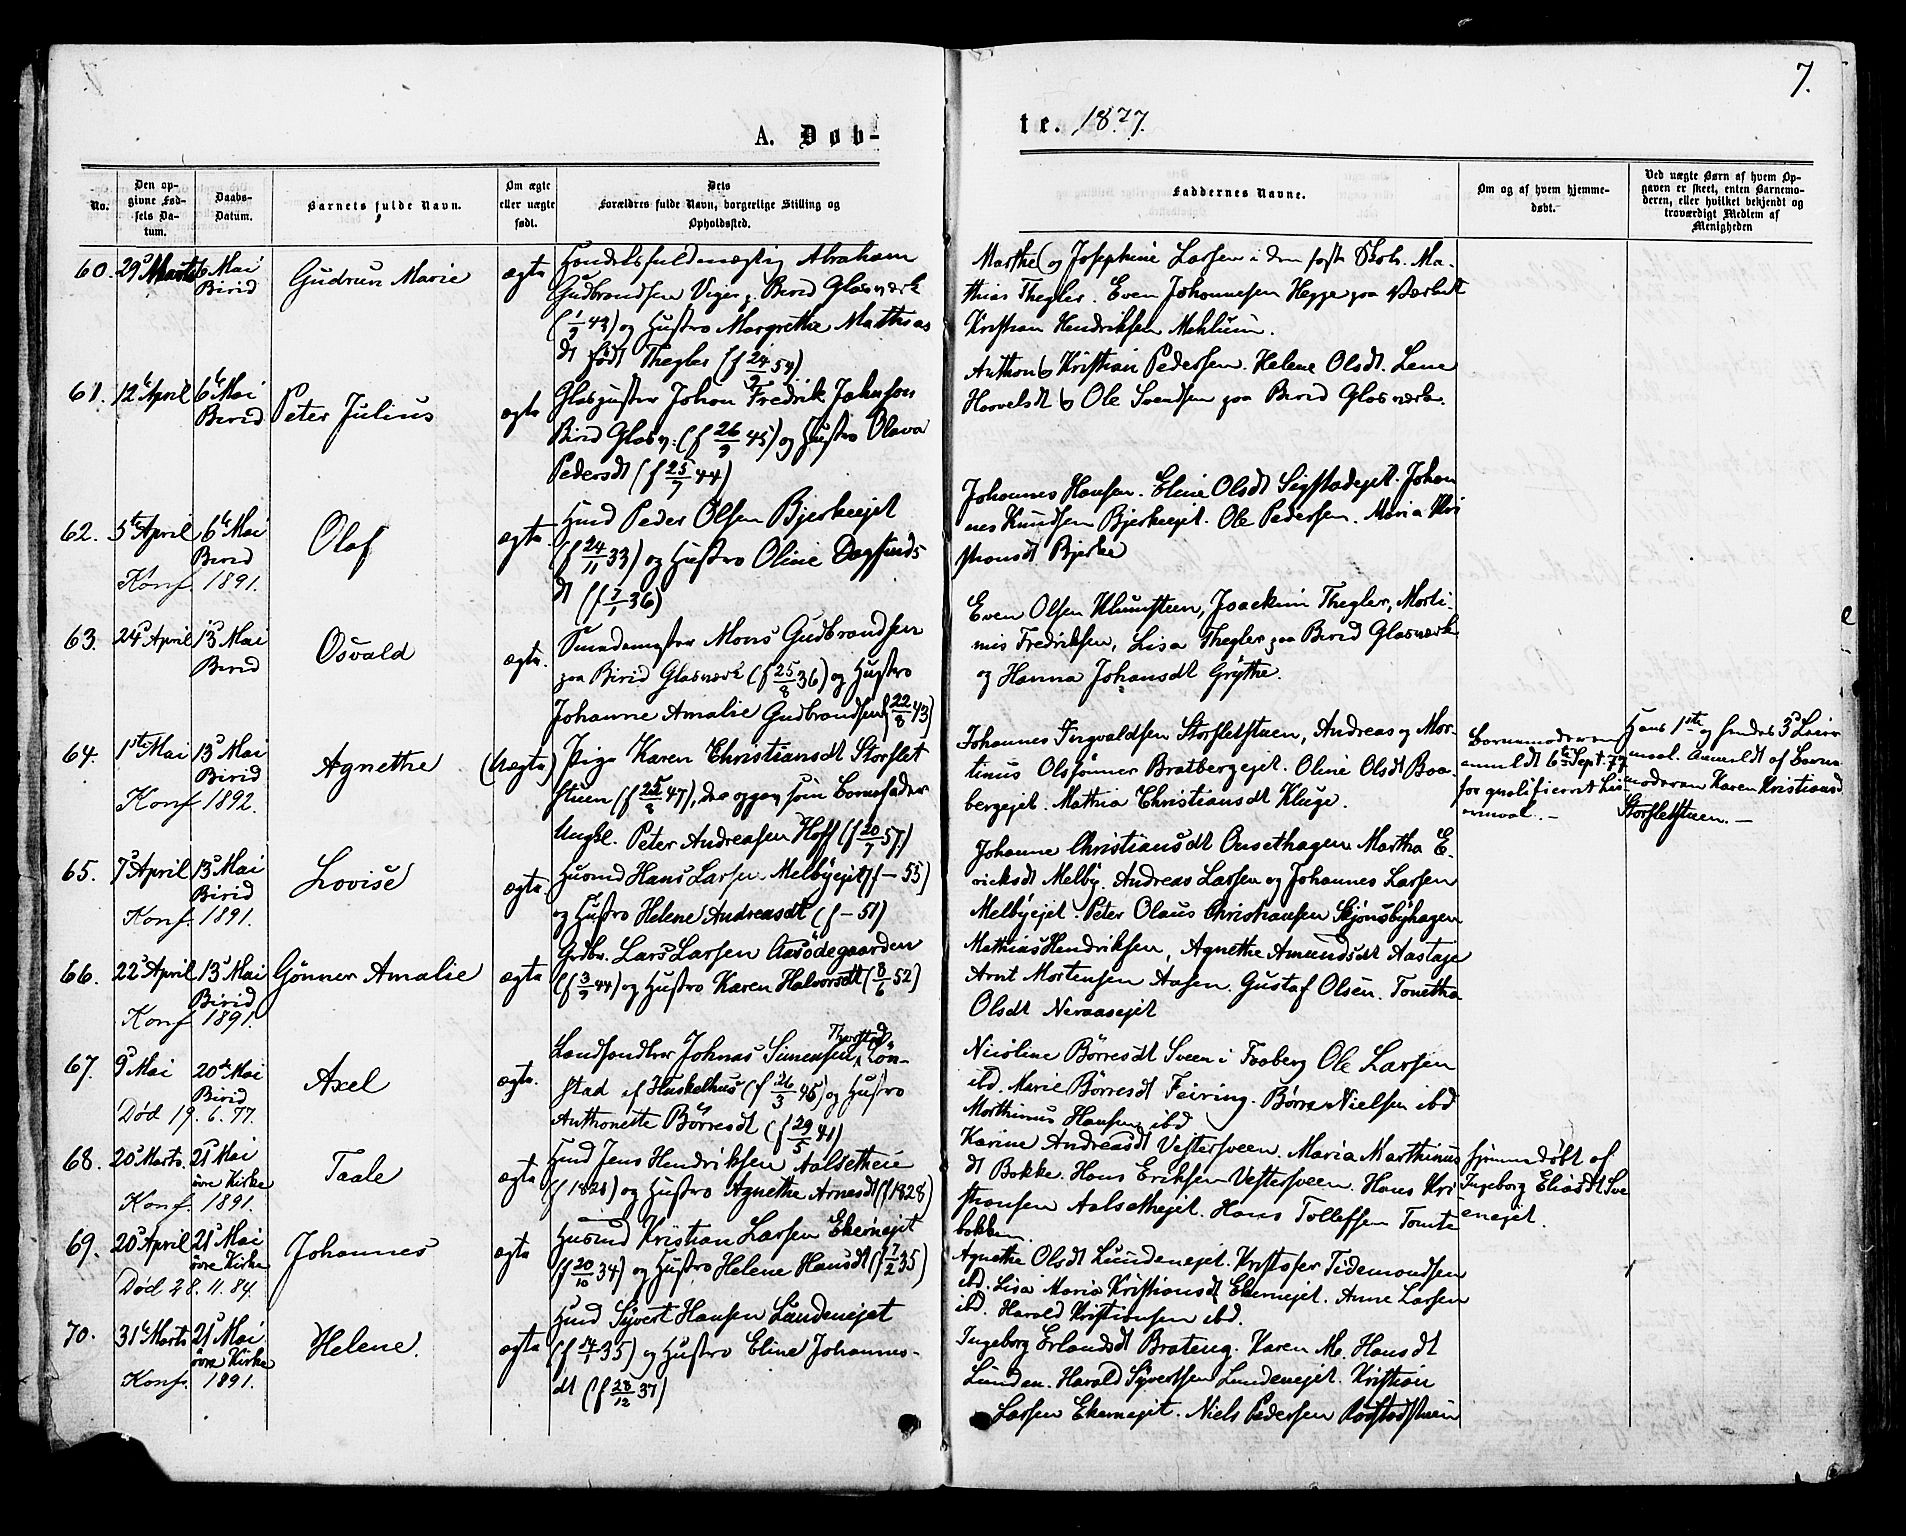 7.
A. Døb-
te. 1877.
No.
Den op-
givne Fød-
sels Da-
tum.
Daabs-
Datum.
Barnets fulde Navn.
Om ægte
eller uægte
født.
Dets
Forældres fulde Navn, borgerlige Stilling og
Opholdssted.
Faddernes Navne.
Om og af hvem hjemme-
døbt.
Ved uægte Børn af hvem Op-
gaven er skeet, enten Barnemo-
deren, eller hvilket bekjendt og
troværdigt Medlem af
Menigheden
60. 29d Marts 6 Mai
Birid
Gudrun Marie
ægte
Handelsfuldmægtig Abraham
Gudbrandsen Viger p. Birid Glasværk
og Hustro Margrethe Mathias
dt født Thegler (f 24
Marthe og Josephine Larsen i den
Mathias Thegler. Even Johannesen Hegge paa Værket
Kristian Hendriksen Mehlum.
61. 12te April 6te Mai
Birid
Peter Julius
ægte
Johan Fredrik Johnson
Birid Glasv. (f 26/9 45) og Hustro Olava
Pedersdt (f 25/7 44)
Anthon & Kristian Pedersen. Helene Olsdt. Lene
& Ole Svendsen paa Birid Glasværk.
62. 5te April 6te Mai
Birid
Konf. 1891.
Olaf
ægte.
Hmd Peder Olsen Bjerkeejet
(f 24/11 33) og Hustro Oline Dagfinds
dt (f 7/1 36)
Johannes Hansen. Eline Olsdt Sigstadejet. Johan
nes Knudsen Bjerkeejet. Ole Pedersen. Maria Kri
stiansdt Bjerke
63. 24d April 13d Mai
Birid
Osvald
ægte.
Smedemester Mons Gudbrandsen
paa Birid Glasværk (f 25/8 36) og Hustro
Johanne Amalie Gudbrandsen (22/8 43)
Even Olsen Klumsteen, Joackim Thegler, Marti-
nus Fredriksen, Lisa Thegler paa Birid Glasværk
og Hanna Johansdt Grythe.
64. 1ste Mai 13d Mai
Birid
Konf. 1892.
Agnethe
(Uægte)
Pige Karen Christiansdt Storslet
stuen (f 25/8 47), der opgav som Barnefader
Ungkl. Peter Andreasen Hoff (f 20/7 57.)
Johannes Ingvaldsen Storsletstuen, Andreas og Mar-
tinus Olssønner Bratbergejet. Oline Olsdt Boe
bergejet. Mathia Christiansdt Kluge.
Barnemoderen
anmeldt 6te Sept. 77
for qvalificeret Lei
ermaal. -
Hans 1ste og hendes 3d Leier
maal. Anmeldt af Barne
moderen Karen Kristiansd
Storsletstuen. -
65. 7d April 13d Mai
Birid
Konf. 1891.
Lovise
ægte.
Huusmd Hans Larsen Melbyejet (f - 55)
og Hustro Helene Andreasdt (f - 51)
Johanne Christiansdt Onsethagen Martha E-
ricksdt Melby. Andreas Larsen og Johannes Larsen
Melbyejet. Peter Olaus Christiansen Skjønsbyhagen
66. 22d April 13d Mai
Birid
Konf. 1891.
Gønner Amalie
ægte
Grdbr. Lars Larsen Aasødegaarden
(f 3/9 44) og Hustro Karen Halvorsdt (8/6 52)
Mathias Hendriksen, Agnethe Amundsdt Aastaje
Arnt Mortensen Aasen. Gustaf Olsen. Tonetha
Olsdt Neraasejet
67. 9d Mai 20de Mai
Birid
Død 19. 6. 77.
Axel
ægte.
Landhandler Johnas Simensen Thorstad Løn-
stad ef Huskelhus (f 26/3 45) og Hustro
Anthonette Børresdt (f 29/5 41)
Nicoline Børresdt Sveen i Faaberg Ole Larsen
ibd. Marie Børresdt Feiring. Børre Nielsen ibd
Marthinus Hansen ibd
68. 20d Marts. 21d Mai
øvre Kirke
Konf. 1891.
Taale
ægte
Hmd Jens Hendriksen Aalsetheie
og Hustro Agnethe Arnesdt (f 1828)
Karine Andreasdt Vestersveen. Maria Marthinus
dt Bakke. Hans Eriksen Vestersveen. Hans Kri
stiansen Aalsethejet. Hans Tollefsen Tomte
bakken.
Hjemmedøbt af
Ingeborg Eliasdt Sve
enejet.
69. 20d April 21d Mai
øvre Kirke
Død 28. 11. 84.
Johannes
ægte
Husmd Kristian Larsen Ekernejet
(f 20/10 34) og Hustro Helene Hansdt (f 7/2 35)
Agnethe Olsdt Lundenejet. Kristofer Tidemandsen
ibd. Lisa Maria Kristiansdt Ekernejet. Anne Larsen
ibd. Harald Kristiansen ibd.
70. 31te Marts 21d Mai
øvre Kirke
Konf. 1891.
Helene.
ægte
Hmd Syvert Hansen Lundenejet
(f 14/1 35) og Hustro Eline Johannes-
dt (f 28/12 37)
Ingeborg Erlandsdt Brateng. Karen M. Hansdt
Lunden. Harald Syvertsen Lundenejet. Kristian
Larsen Ekernejet. Niels Pedersen Rostadstuen